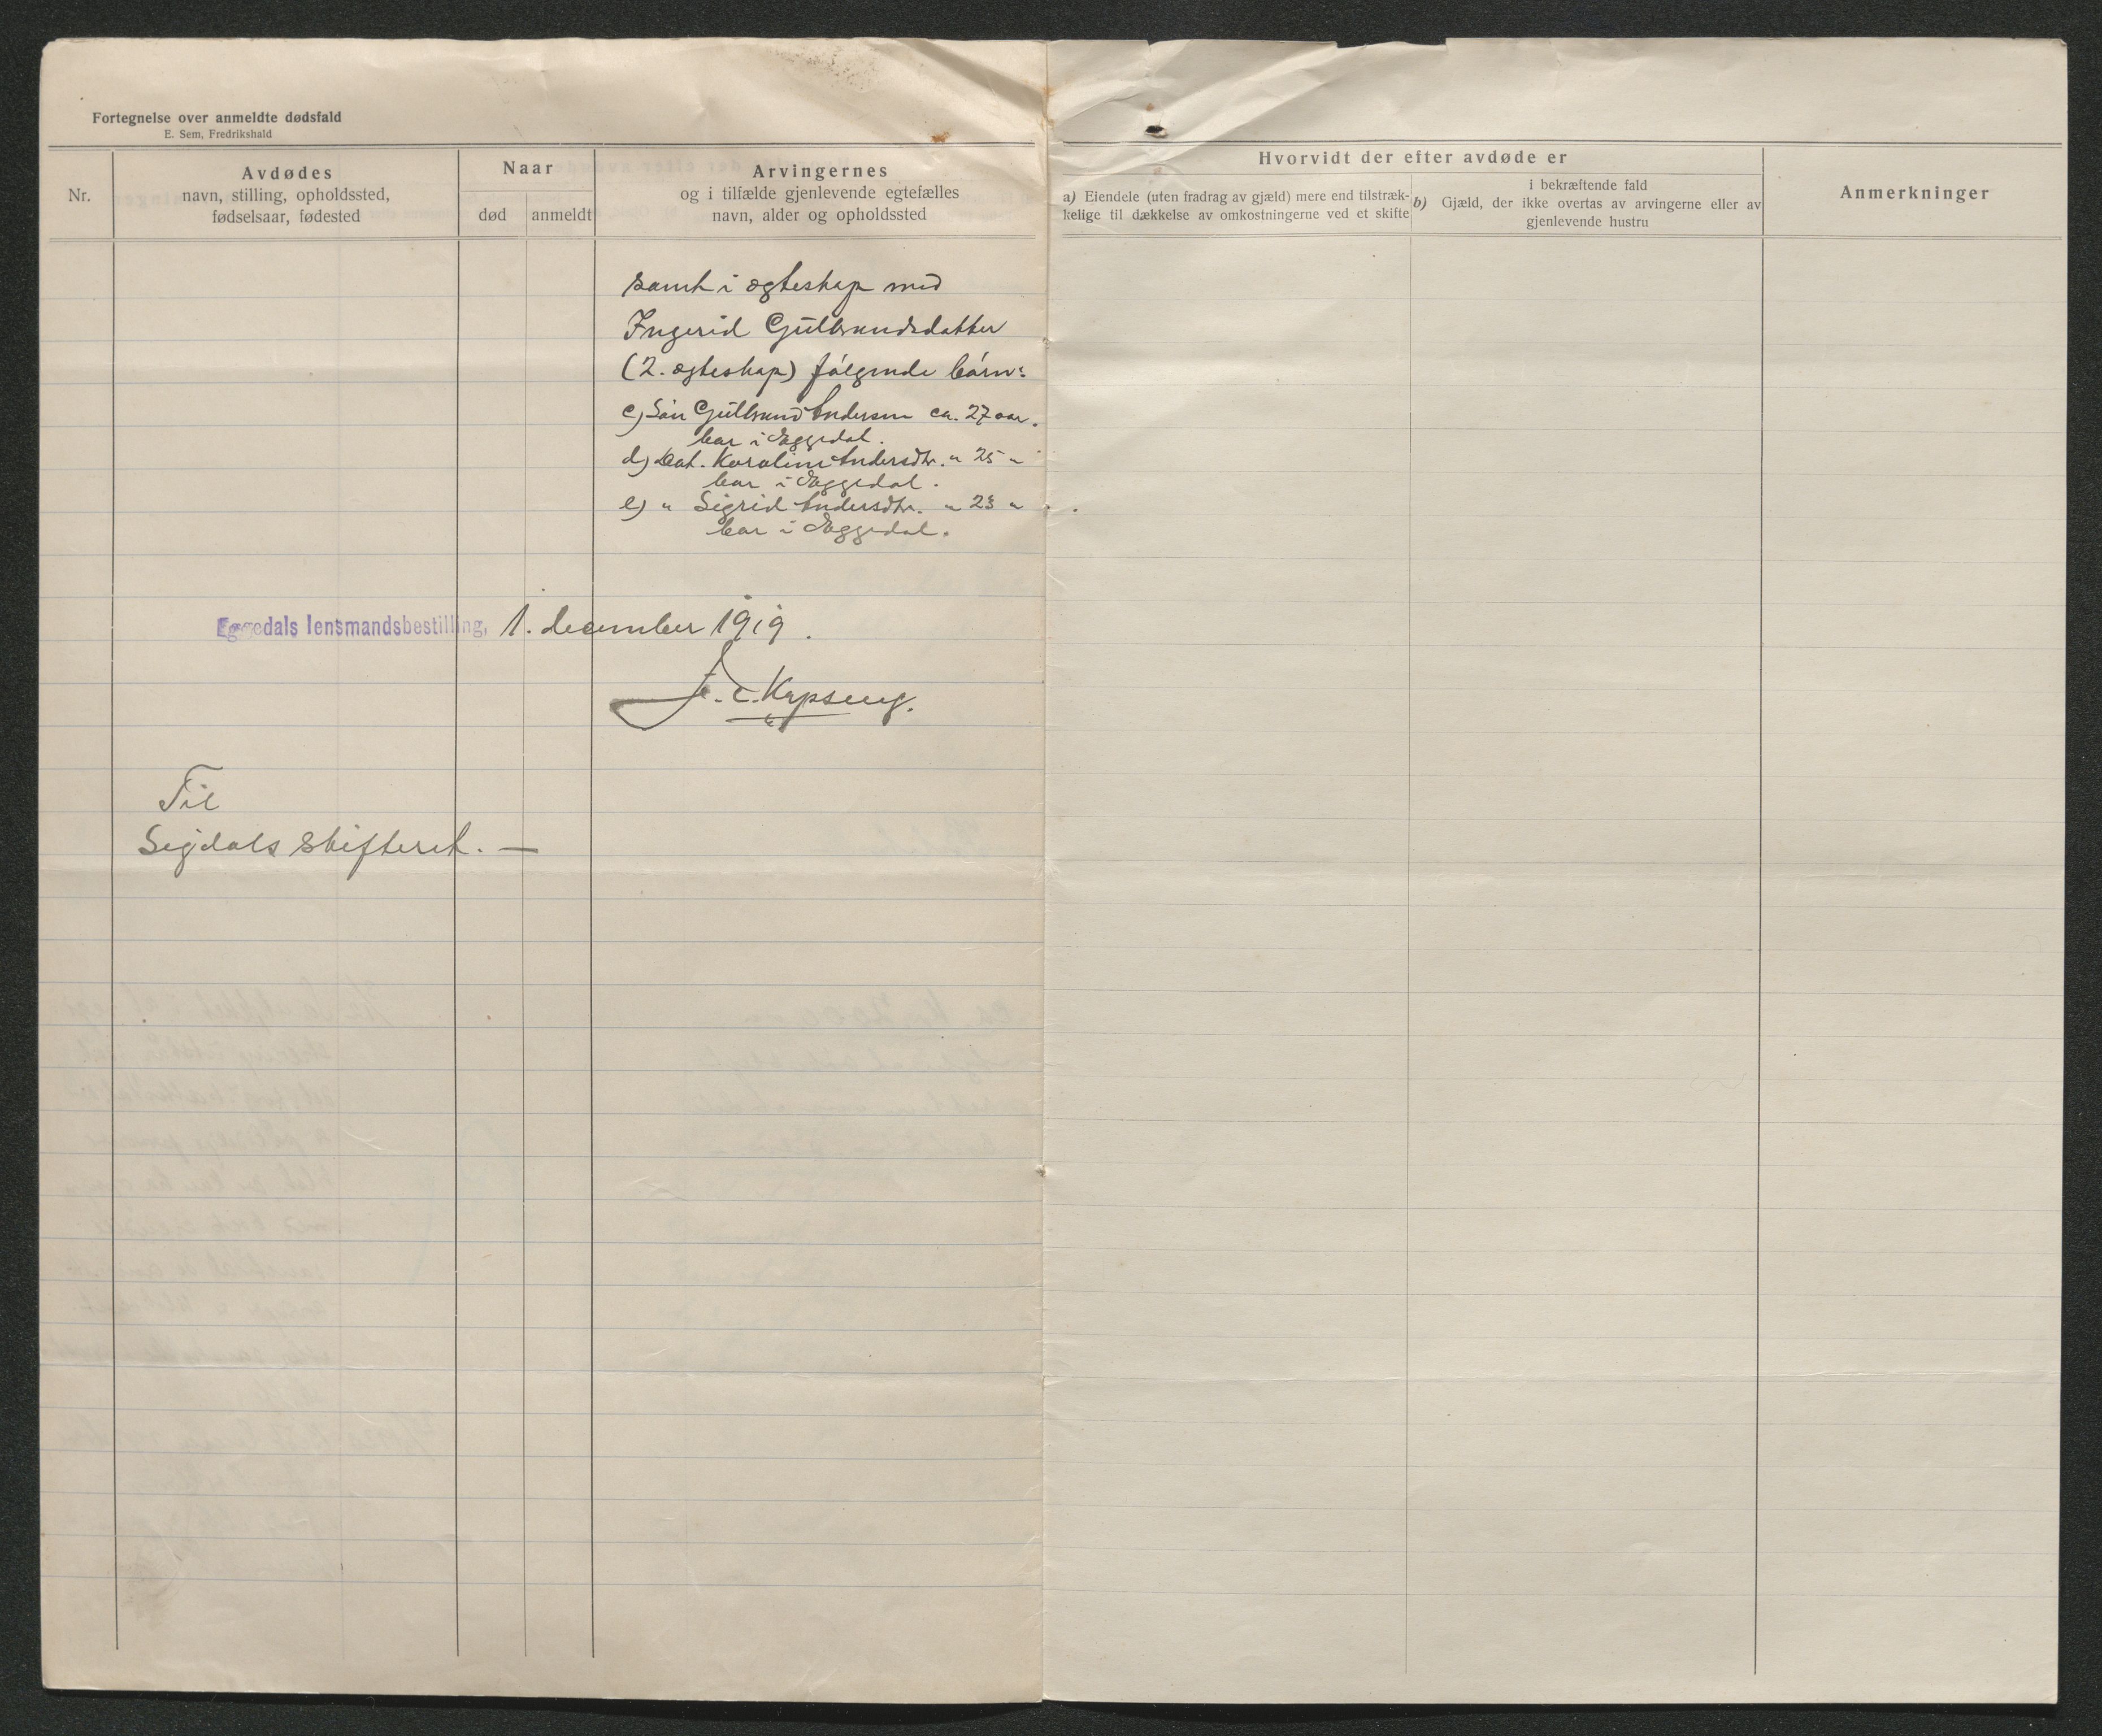 Fortegnelse over anmeldte dødsfald
E. Sem, Fredrikshald
Nr.
Avdødes
navn, stilling, opholdssted,
fødselsaar, fødested
Naar
død
anmeldt
Arvingernes
og i tilfælde gjenlevende egtefælles
navn, alder og opholdssted
Hvorvidt der efter avdøde er
a) Eiendele (uten fradrag av gjæld) mere end tilstræk-
kelige til dækkelse av omkostningerne ved et skifte
i bekræftende fald
b) Gjæld, der ikke overtas av arvingerne eller av
gjenlevende hustru
Anmerkninger
samt i egteskap med
Ingerid Gulbrandsdatter
(2. egteskap) følgende børn:
c) Søn Gulbrand Andersen ca. 27 aar.
bor i Eggedal.
d) Dat. Karoline Andersdtr. " 25 "
bor i Eggedal.
e) " Sigrid Andersdtr. " 23 "
bor i Eggedal.
Eggedals lensmandsbestilling, 1. december 1919.
Til
Sigdals skifteret. —